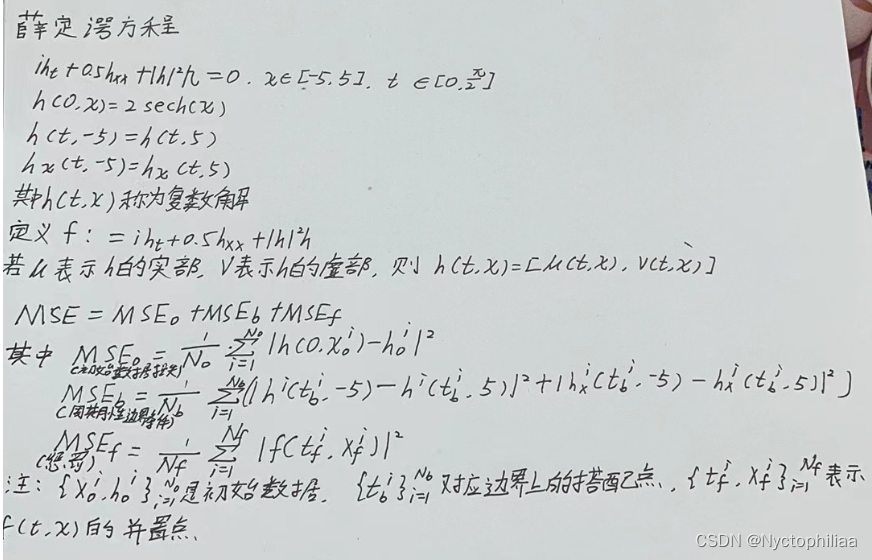 薛定谔方程
ih_t+0.5h_xx+|h|²h=0. x∈[-5,5], t∈[0,π/2]
h(0,x)=2sech(x)
h(t,-5)=h(t,5)
h_x(t,-5)=h_x(t,5)
其中h(t,x)称为复数解
定义 f:=ih_t+0.5h_xx+|h|²h
若μ表示h的实部, v表示h的虚部, 则 h(t,x)=[μ(t,x), v(t,x)]
MSE=MSE_0+MSE_b+MSE_f
其中 MSE_0=1/N_0 ∑_{i=1}^{N_0}|h(0,x_0^i)-h_0^i|²
(初始数据损失)
MSE_b=1/N_b ∑_{i=1}^{N_b}(|h^i(t_b^i,-5)-h^i(t_b^i,5)|²+|h_x^i(t_b^i,-5)-h_x^i(t_b^i,5)|²)
(周期性边界条件)
MSE_f=1/N_f ∑_{i=1}^{N_f}|f(t_f^i,x_f^i)|²
(惩罚)
注: {x_0^i,h_0^i}_{i=1}^{N_0}是初始数据, {t_b^i}_{i=1}^{N_b}对应边界上的搭配点, {t_f^i,x_f^i}_{i=1}^{N_f}表示
f(t,x)的并置点.
CSDN @Nyctophiliaa